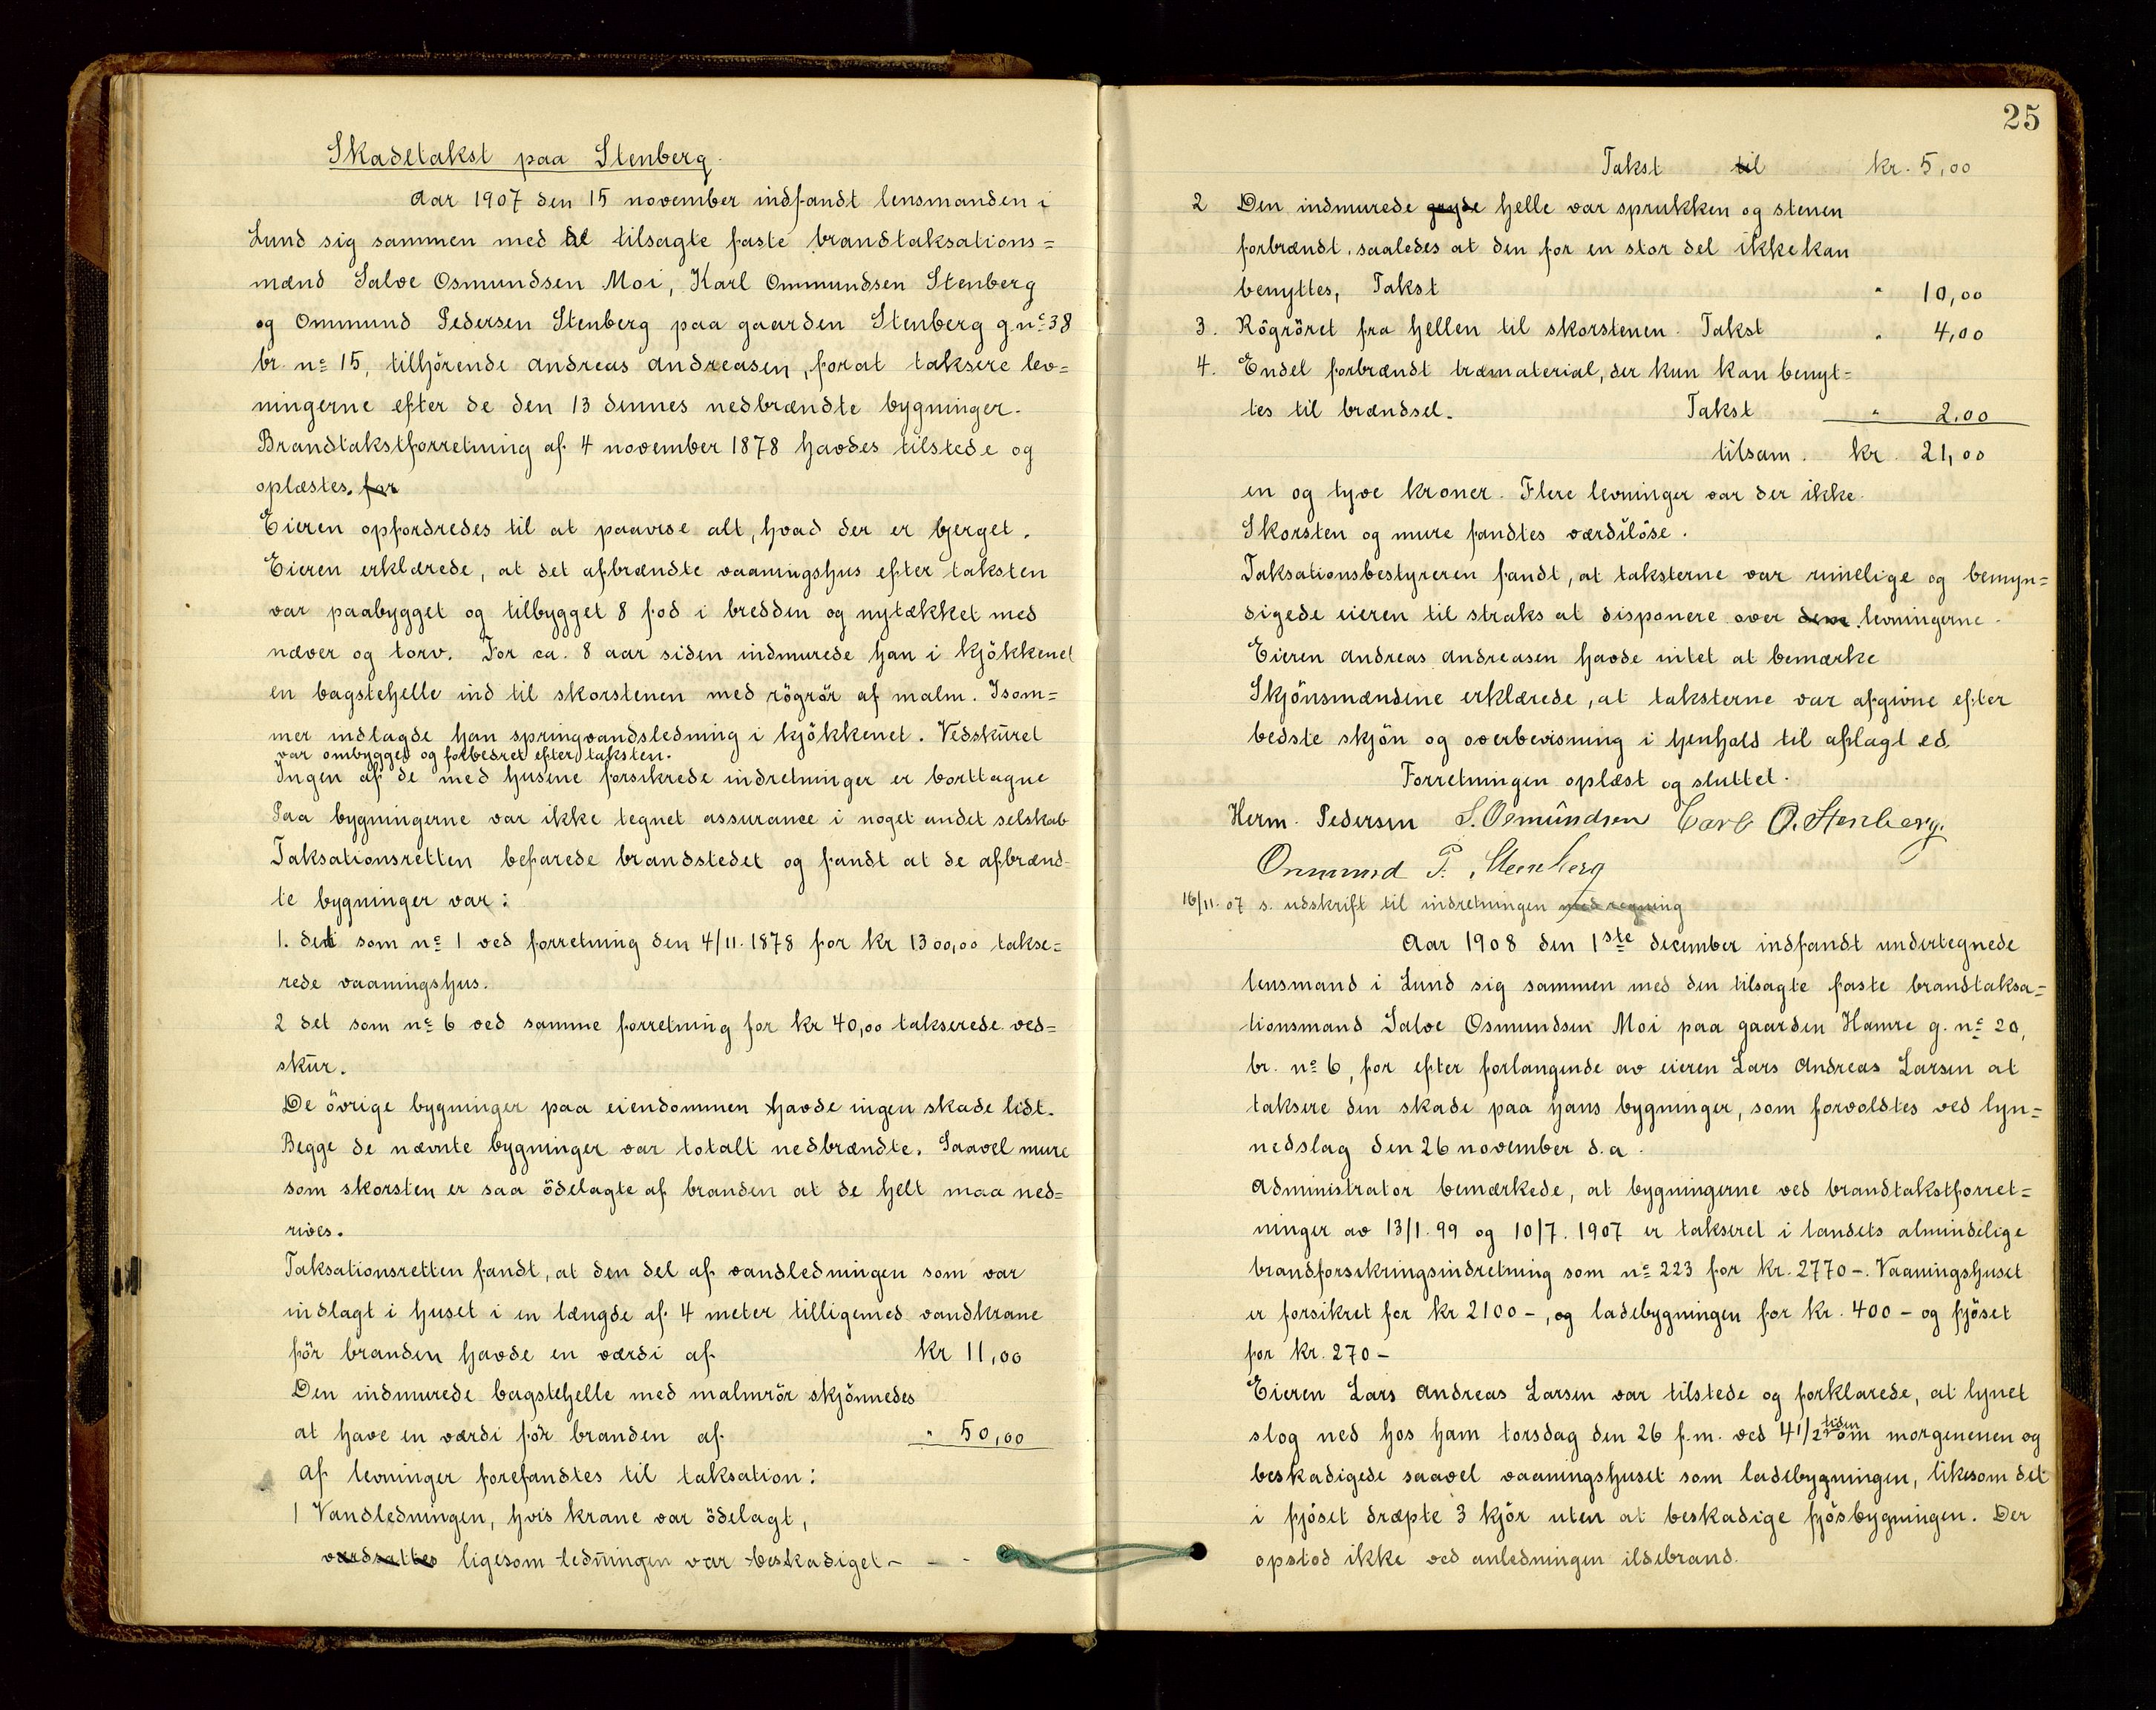 Skadetakst paa Stenberg.
Aar 1907 den 15 november indfandt lensmanden i
Lund sig sammen med de tilsagte faste brandtaksations=
mænd Salve Osmundsen Moi, Karl Ommundsen Stenberg
og Ommund Pedersen Stenberg paa gaarden Stenberg g.no 38
br. no 15, tilhörende Andreas Andreasen, forat taksere lev=
ningerne efter de den 13 dennes nedbrændte bygninger.
Brandtakstforretning af 4 november 1878 havdes tilstede og
oplæstes. for
Eieren opfordredes til at paavise alt, hvad der er bjerget.
Eieren erklærede, at det afbrændte vaaningshus efter taksten
var paabygget og tilbygget 8 fod i bredden og nytækket med
næver og torv. For ca. 8 aar siden indmurede han i kjökkenet
en bagstehelle ind til skorstenen med rögrör af malm. Isom=
mer indlagde han springvandsledning i kjökkenet. Vedskuret
var ombygget og forbedret efter taksten.
Ingen af de med husene forsikrede indretninger er borttagne
Paa bygningerne var ikke tegnet assurance i noget andet selskab
Taksationsretten befarede brandstedet og fandt at de afbrænd-
te bygninger var:
1. det som no 1 ved forretning den 4/11. 1878 for kr 1300,00 takse=
rede vaaningshus.
2 det som no 6 ved samme forretning for kr 40,00 takserede ved=
skur.
De övrige bygninger paa eiendommen havde ingen skade lidt.
Begge de nævnte bygninger var totalt nedbrændte. Saavel mure
som skorsten er saa ödelagte af branden at de helt maa ned=
rives.
Taksationsretten fandt, at den del af vandledningen som var
indlagt i huset i en længde af 4 meter tilligemed vandkrane
för branden havde en værdi af kr 11,00
Den indmurede bagstehelle med malmrör skjönnedes
at have en værdi för branden af " 50,00
Af levninger forefandtes til taksation:
1 Vandledningen, hvis krane var ödelagt,
værdsattes ligesom ledningen var beskadiget - - -
25
Takst til kr. 5,00
2 Den indmurede gryde helle var sprukken og stenen
forbrændt, saaledes at den for en stor del ikke kan
benyttes, Takst " 10,00
3. Rögröret fra hellen til skorstenen. Takst " 4,00
4. Endel forbrændt træmaterial, der kun kan benyt=
tes til brændsel. Takst " 2,00
tilsam. kr. 21,00
en og tyve kroner. Flere levninger var der ikke.
Skorsten og mure fandtes værdilöse.
Taksationsbestyreren fandt, at taksterne var rimelige og bemyn=
digede eieren til straks at disponere over dem levningerne.
Eieren Andreas Andreasen havde intet at bemærke
Skjönsmændene erklærede, at taksterne var afgivne efter
bedste skjön og overbevisning i henhold til aflagt ed.
Forretningen oplæst og sluttet.
Herm. Pedersen S. Osmundsen Carl O. Stenberg.
Ommund P. Stenberg
16/11. 07 s. udskrift til indretningen med regning
Aar 1908 den 1ste december indfandt undertegnede
lensmand i Lund sig sammen med den tilsagte faste brandtaksa=
tionsmand Salve Osmundsen Moi paa gaarden Hamre g. no 20,
br. no 6, for efter forlangende av eieren Lars Andreas Larsen at
taksere den skade paa hans bygninger, som forvoldtes ved lyn=
nedslag den 26 november d.a.
Administrator bemærkede, at bygningerne ved brandtakstforret=
ninger av 13/1. 99 og 10/7. 1907 er takseret i landets almindelige
brandforsikringsindretning som no 223 for kr. 2770 -. Vaaningshuset
er forsikret for kr 2100 -, og ladebygningen for kr. 400 - og fjöset
for kr. 270 -
Eieren Lars Andreas Larsen var tilstede og forklarede, at lynet
slog ned hos ham torsdag den 26 f.m. ved 4 1/2 tiden om morgenenen og
beskadigede saavel vaaningshuset som ladebygningen, likesom det
i fjöset dræpte 3 kjör uten at beskadige fjösbygningen. Der
opstod ikke ved anledningen ildebrand.